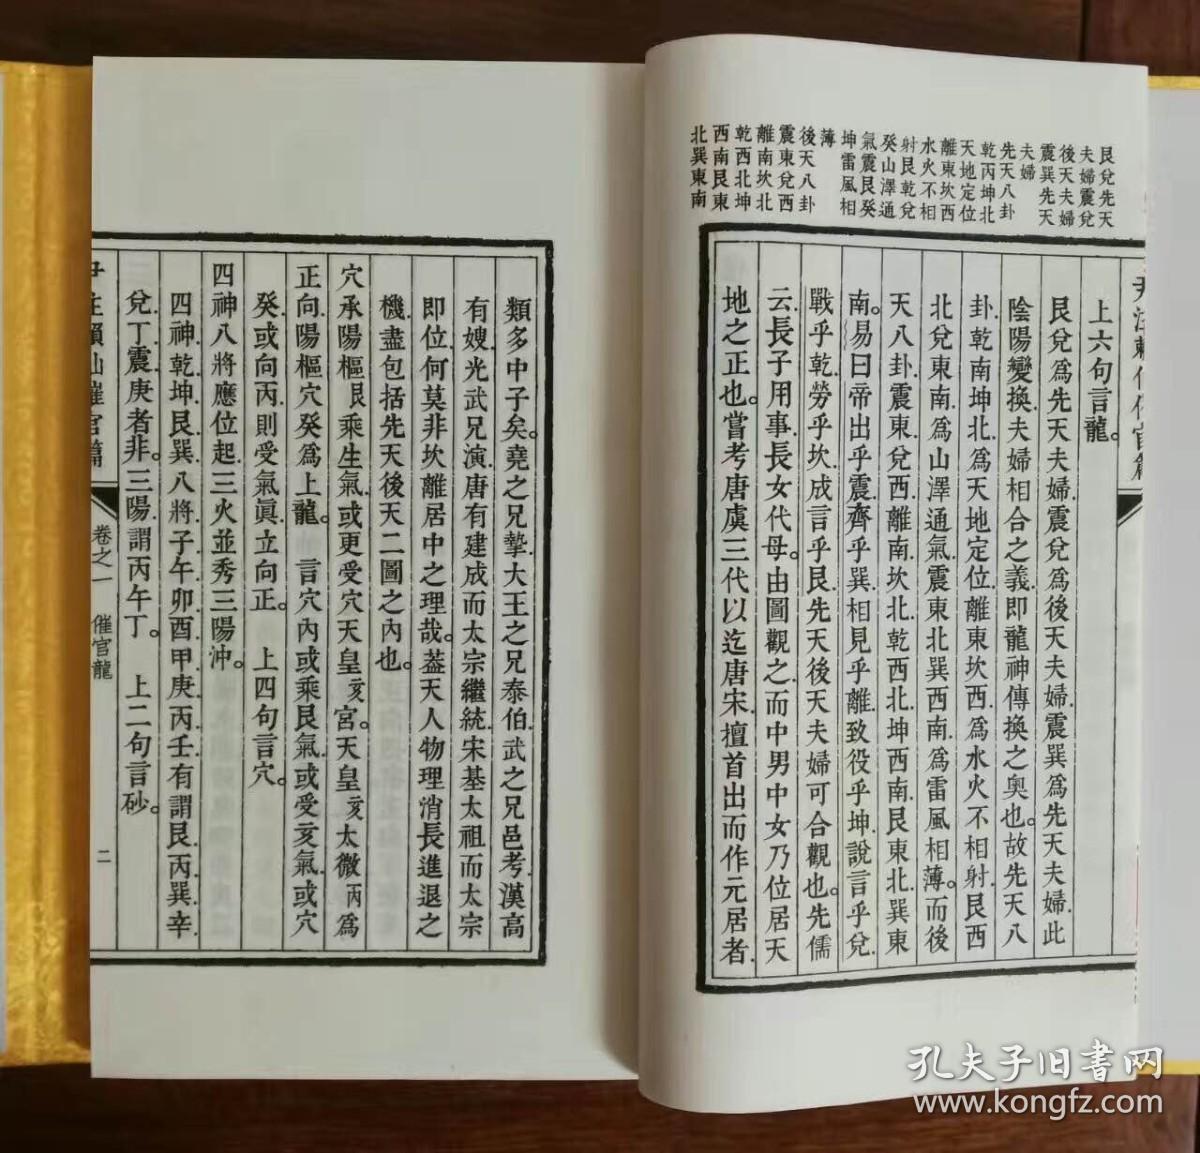 艮兌先天
夫婦震兌
後天夫婦
震巽先天
夫婦
先天八卦
乾丙坤北
天地定位
離東坎西
水火不相
射艮乾兌
癸山澤通
氣震艮癸
坤雷風相
薄
後天八卦
震東兌西
離南坎北
乾西北坤
西南艮東
北巽東南
上六句言龍。
艮兌爲先天夫婦.震兌爲後天夫婦.震巽爲先天夫婦.此
陰陽變換.夫婦相合之義.即龍神傳換之奧也。故先天八
卦.乾南坤北.爲天地定位.離東坎西.爲水火不相射.艮西
北兌東南.爲山澤通氣.震東北巽西南.爲雷風相薄。而後
天八卦.震東.兌西.離南.坎北.乾西北.坤西南.艮東北.巽東
南。易曰.帝出乎震.齊乎巽.相見乎離.致役乎坤.說言乎兌.
戰乎乾.勞乎坎.成言乎艮.先天後天夫婦可合觀也。先儒
云.長子用事.長女代母。由圖觀之.而中男中女乃位居天
地之正也。嘗考唐虞三代以迄唐宋.擅首出而作元居者.
類多中子矣。堯之兄摯.大王之兄泰伯.武之兄邑考.漢高
有嫂.光武兄演.唐有建成而太宗繼統.宋基太祖而太宗
即位.何莫非坎離居中之理哉。葢天人物理消長進退之
機.盡包括先天後天二圖之內也。
穴承陽樞艮乘生氣.或更受穴天皇亥宮。天皇亥太微丙爲
正向.陽樞穴癸爲上龍。 言穴內或乘艮氣.或受亥氣.或穴
癸.或向丙.則受氣眞.立向正。 上四句言穴。
四神八將應位起.三火並秀三陽沖。
四神.乾坤艮巽.八將.子午卯酉甲庚丙壬.有謂艮丙巽辛
兌丁震庚者非。三陽.謂丙午丁。 上二句言砂。
卷之一 催官龍
二
孔夫子旧书网
www.kongfz.com